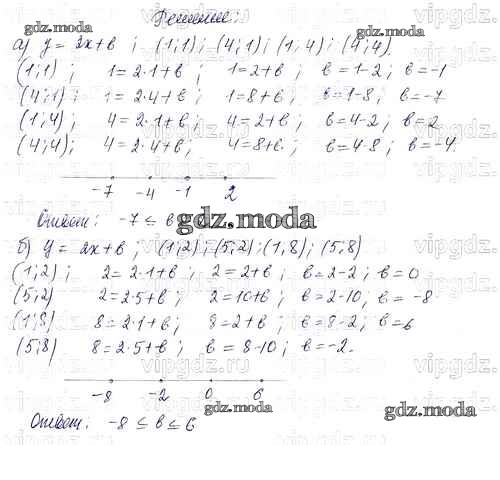 Решение:
а) y = 2x+в ; (1;1); (4;1); (1;4); (4;4).
(1;1) ; 1=2·1+в ; 1=2+в ; в=1-2 ; в=-1
(4;1) ; 1=2·4+в ; 1=8+в ; в=1-8 ; в=-7
(1;4) ; 4=2·1+в ; 4=2+в ; в=4-2 ; в=2
(4;4) ; 4=2·4+в ; 4=8+в ; в=4-8 ; в=-4
-7 -4 -1 2
Ответ: -7 ≤ в
gdz.moda
б) y = 2x+в ; (1;2) ; (5;2) ; (1;8) ; (5;8)
(1;2) ; 2=2·1+в ; 2=2+в ; в=2-2 ; в=0
(5;2) 2=2·5+в ; 2=10+в ; в=2-10, в=-8
(1;8) 8=2·1+в ; 8=2+в ; в=8-2 ; в=6
(5;8) 8=2·5+в ; в=8-10 ; в=-2.
-8 -2 0 6
gdz.moda
gdz.moda
Ответ: -8 ≤ в ≤ 6
vipgdz.ru